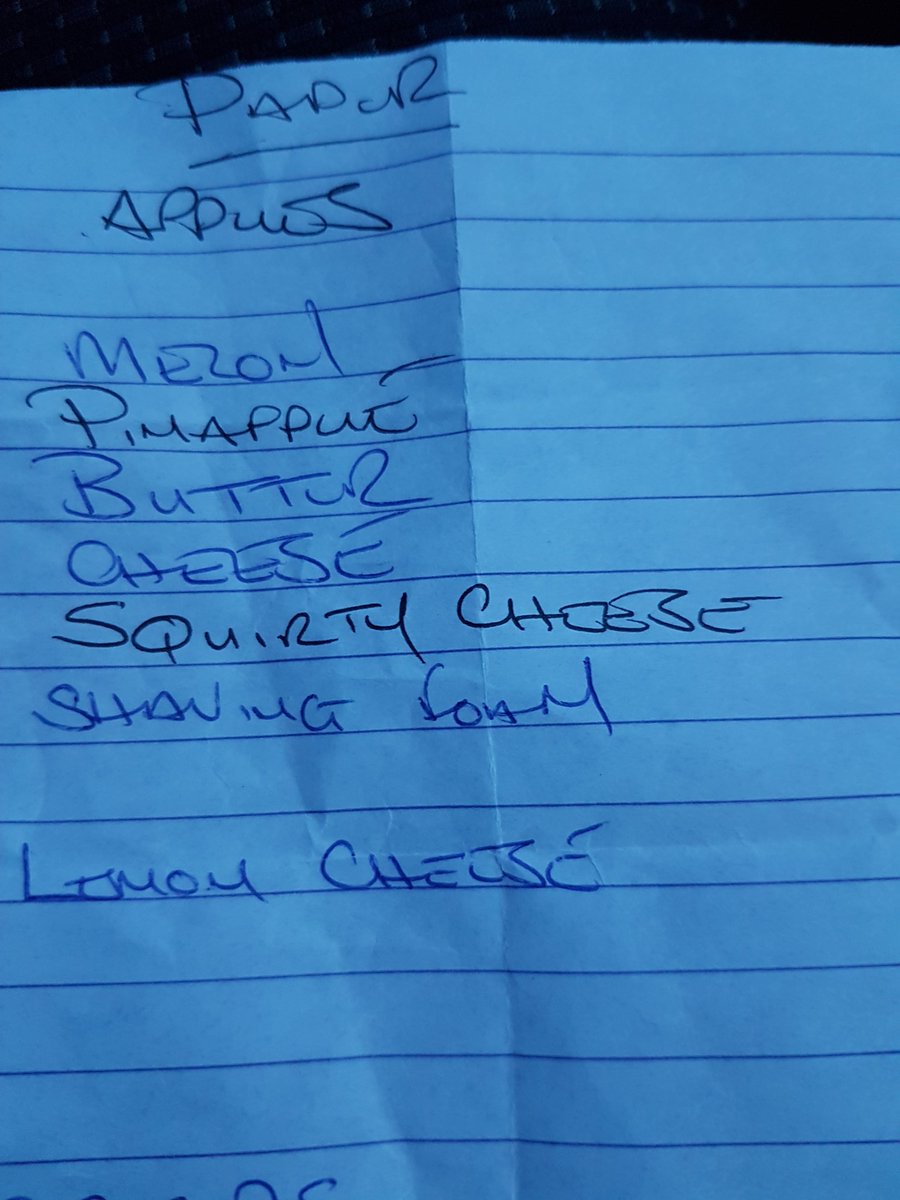 PAPER
APPLES
MELON
PINAPPLE
BUTTER
CHEESE
SQUIRTY CHEESE
SHAVING FOAM
LEMON CHEESE